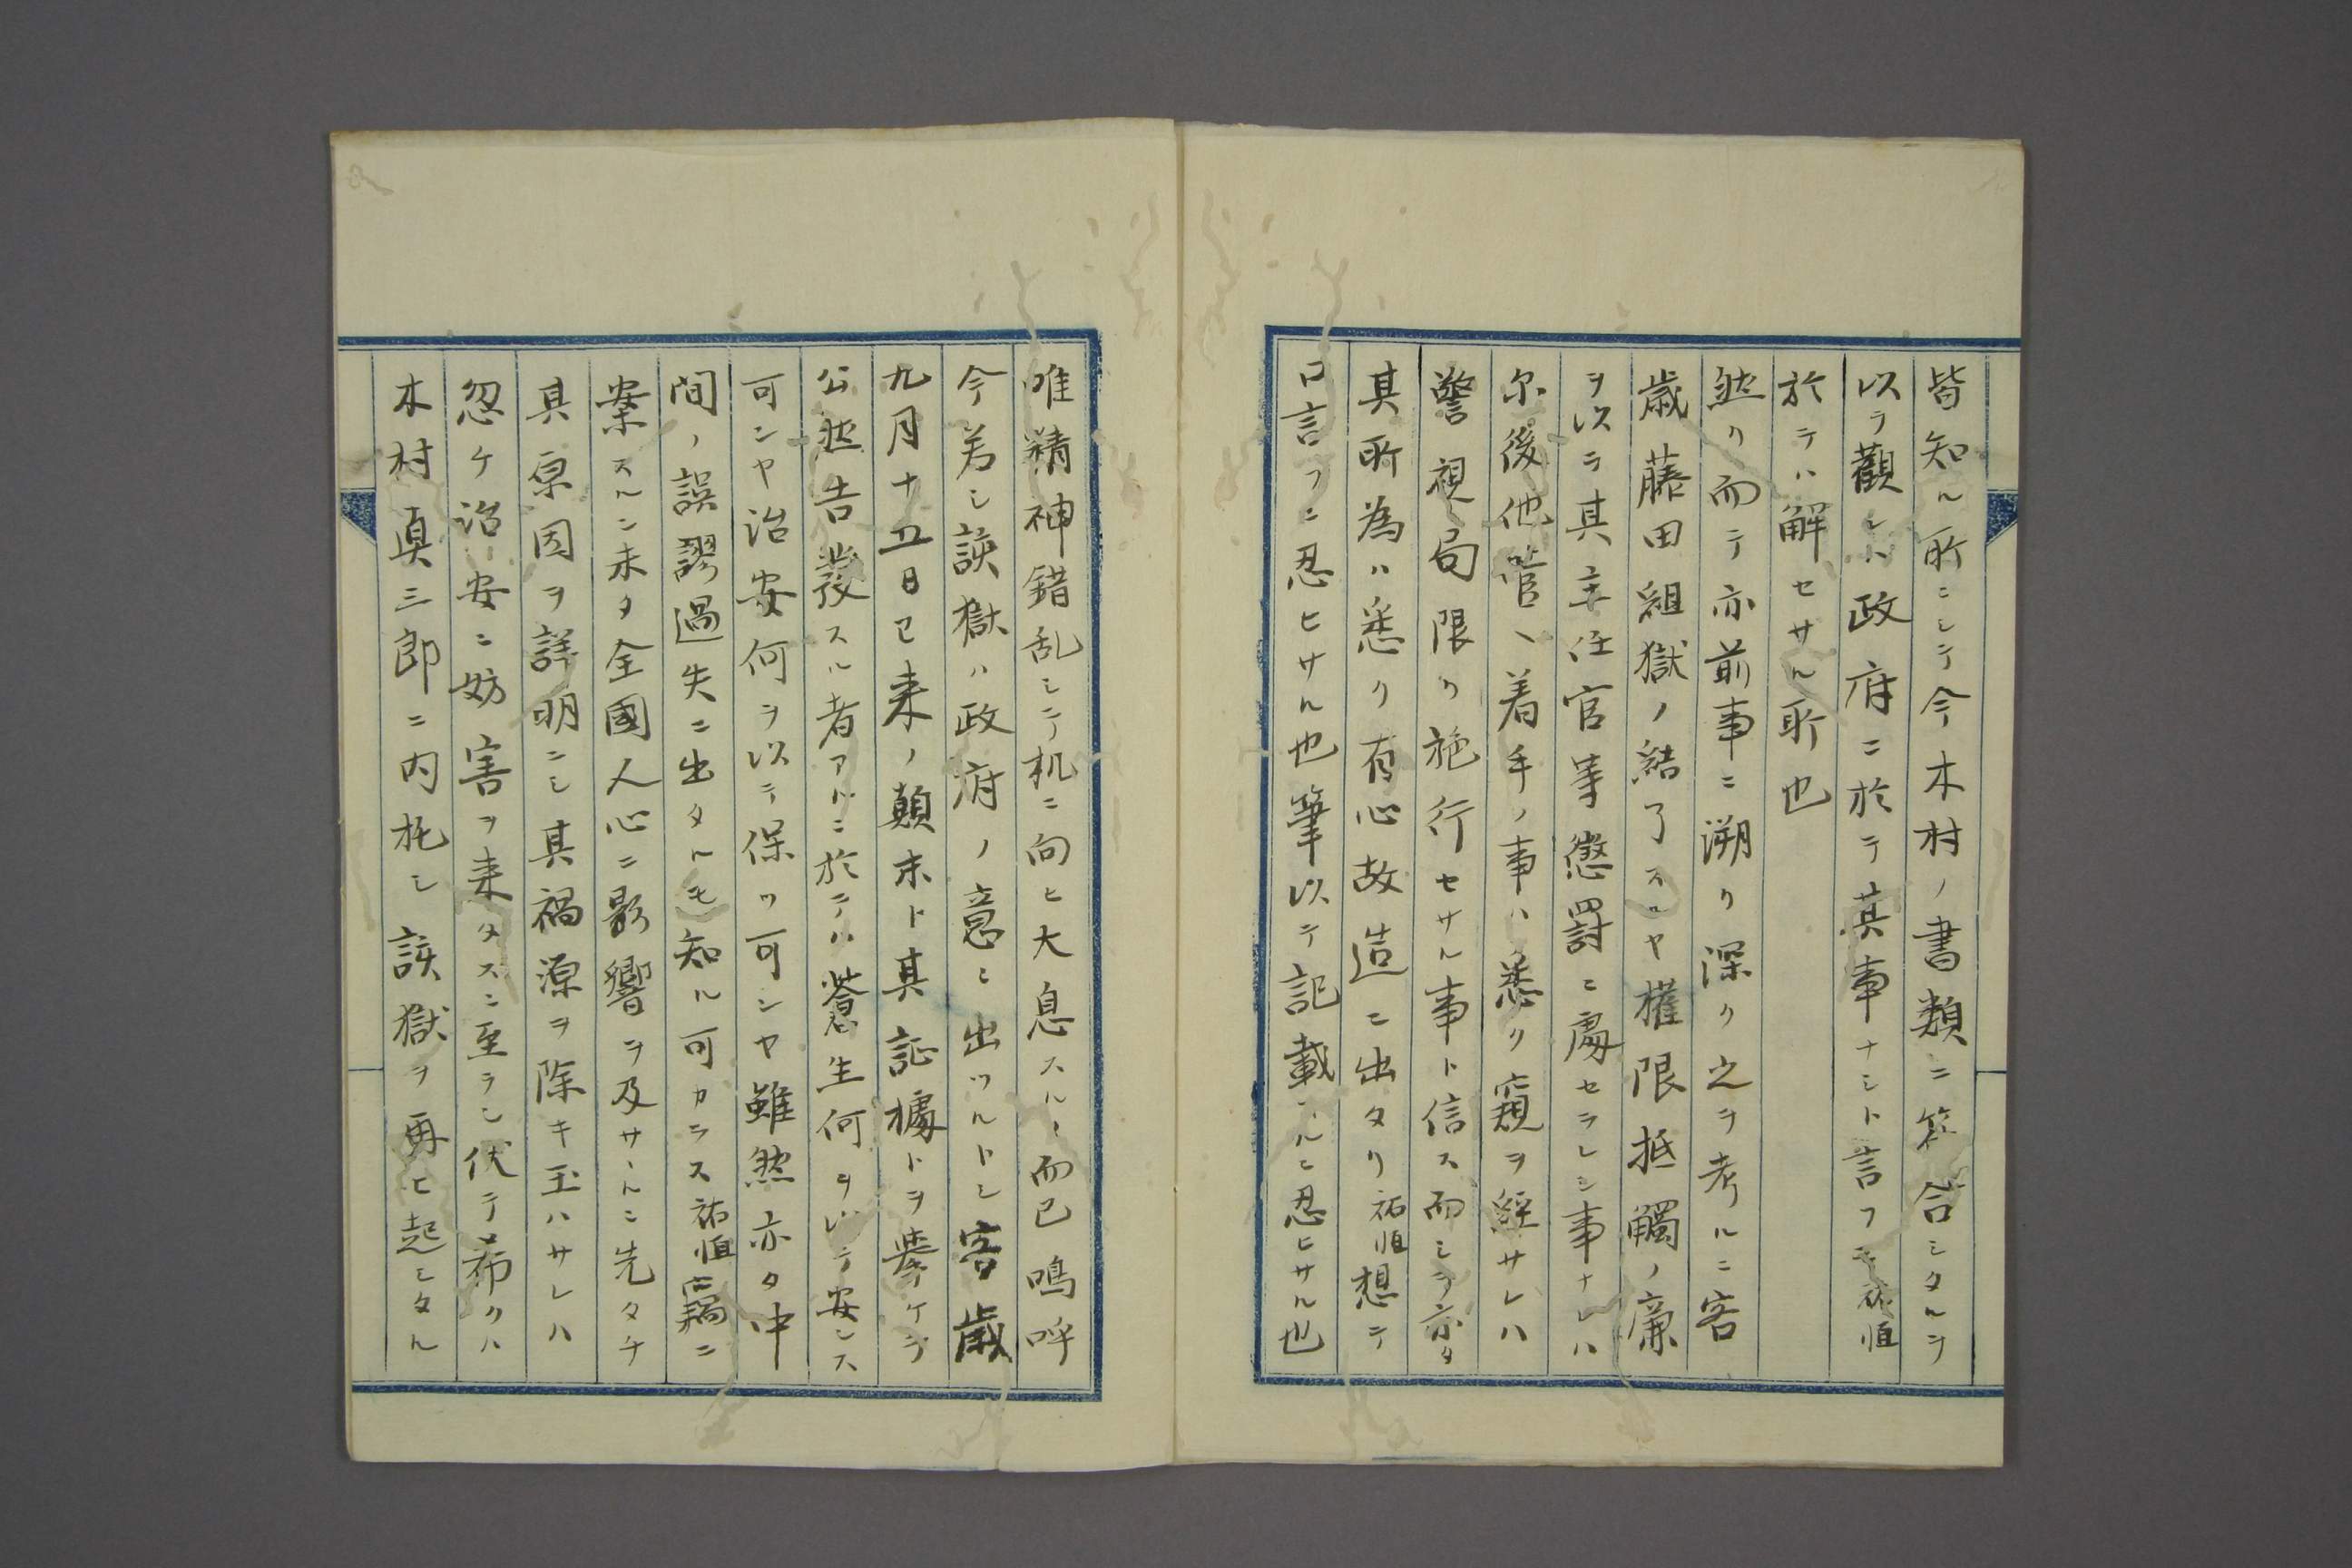 皆知ル所ニシテ今木村ノ書類ニ符合シタルヲ
以テ觀レハ政府ニ於テ其事ナシト言フモ祐恒
於テハ解セサル所也
然リ而テ亦前事ニ溯リ深ク之ヲ考ルニ客
歳藤田組獄ノ結了スルヤ權限抵觸ノ廉
ヲ以テ其主任官等懲罰ニ處セラレシ事ナレハ
尓後他管ヘ着手ノ事ハ悉ク窺ヲ経サレハ
警視局限リ施行セサル事ト信ス而シテ亦タ
其所為ハ悉ク有心故造ニ出タリ祐恒想テ
口言フニ忍ヒサル也筆以テ記載スルニ忍ヒサル也
唯精神錯乱シテ机ニ向ヒ大息スルノミ而已嗚呼
今若シ該獄ハ政府ノ意ニ出ツルトシ客歳
九月十五日已来ノ顛末ト其証據トヲ挙ケテ
公然告發スル者アルニ於テハ蒼生何ヲ以テ安ンス
可ンヤ治安何ヲ以テ保ツ可シヤ雖然亦タ中
間ノ誤謬過失ニ出タルモ知ル可カラス祐恒竊ニ
案スルニ未タ全國人心ニ影響ヲ及サヽルニ先タチ
其原因ヲ詳明ニシ其禍源ヲ除キ玉ハサレハ
忽ケ治安ニ妨害ヲ来タスニ至ラン伏テ希クハ
木村真三郎ニ内托シ該獄ヲ再ヒ起シタル